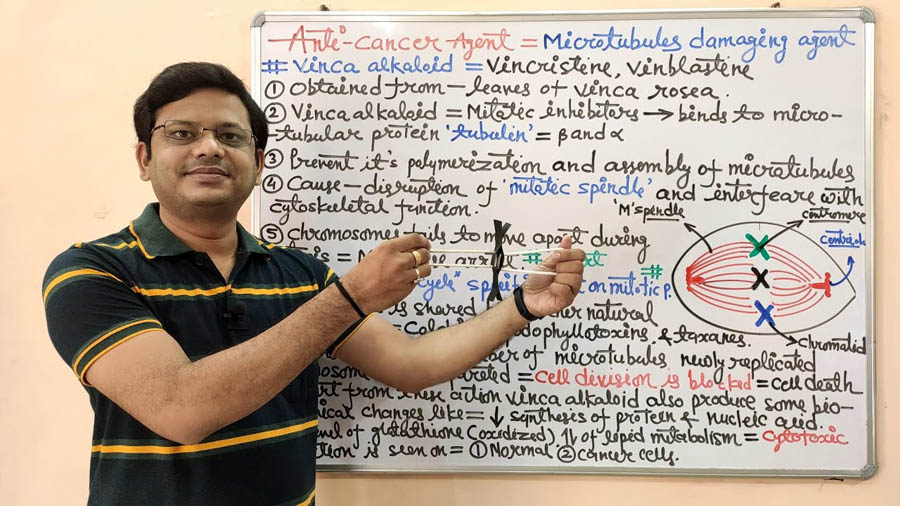 Anti-cancer Agent = Microtubules damaging agent
# Vinca alkaloid = Vincristine, Vinblastine
① Obtained from - leaves of vinca rosea.
② Vinca alkaloid = Mitatic inhibitors → binds to micro-
-tubular protein 'tubulin' = β and α
③ Prevent it's polymerization and assembly of microtubules
④ Cause - disruption of 'mitatic spindle' and interfeare with
cytoskeletal function.
'M' spindle
centromere
centriole
chromatid
⑤ Chromosomes fails to move apart during
is = arrest #
cycle" speci on mitotic p. #
is shared natural
= Col dophyllotoxins & taxanes.
ber of microtubules newly replicated
osom reted = cell division is blocked = cell death
rt from these action vinca alkaloid also produce some bio-
ical changes like = ↓ synthesis of protein & nucleic acid.
vel of glutathione (oxidized) of lipid metabolism = cytotoxic
ction is seen on = ① Normal ② cancer cells.